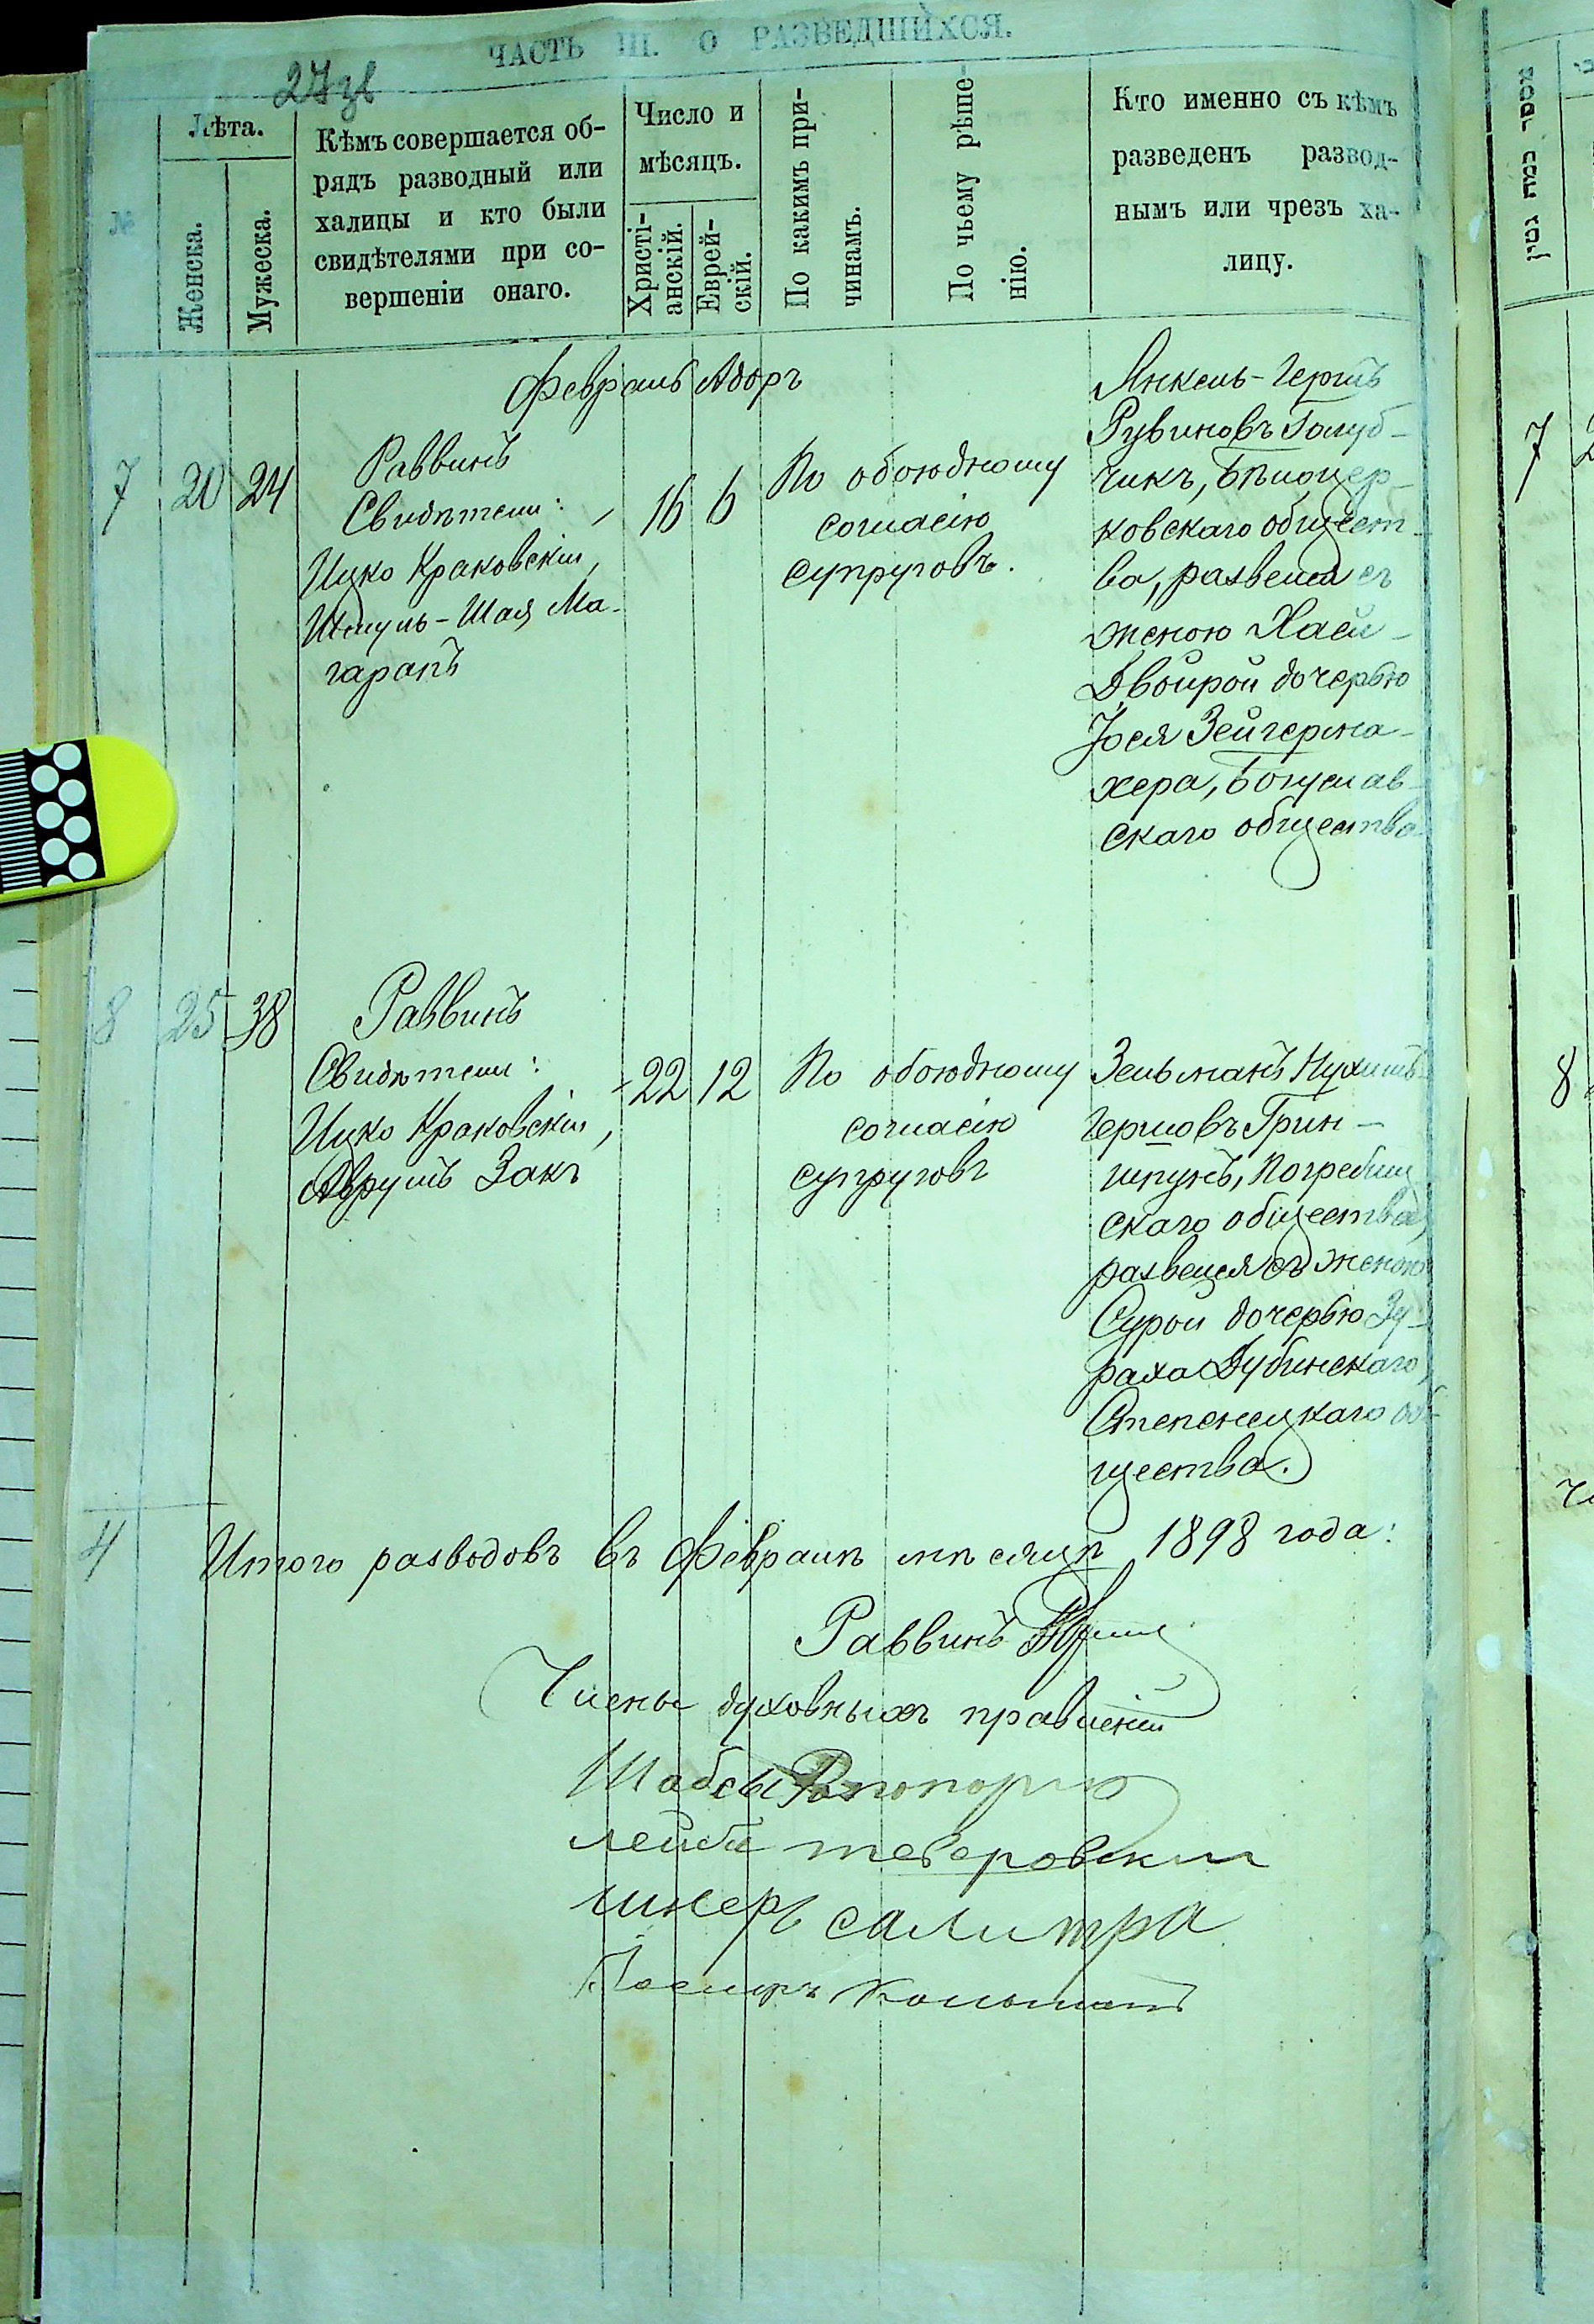 ЧАСТЬ III. О РАЗВЕДШИХСЯ.
27
№
Лѣта.
Женска.
Мужеска.
Кѣмъ совершается об-
рядъ разводный или
халицы и кто были
свидѣтелями при со-
вершеніи онаго.
Число и
мѣсяцъ.
Христі-
анскій.
Еврей-
скій.
По какимъ при-
чинамъ.
По чьему рѣше-
нію.
Кто именно съ кѣмъ
разведенъ развод-
нымъ или чрезъ ха-
лицу.
Февраль Адаръ
7 20 24
Раввинъ
Свидѣтели:
Ицко Краковскій,
Шмуль-Шая Ма-
гарапъ
16 6
По обоюдному
согласію
супруговъ.
Янкель-Гершъ
Рувиновъ Голуб-
чикъ, Бѣлоцер-
ковскаго общест-
ва, развелся съ
женою Хаей-
Двойрой дочерью
Іося Зейгерма-
хера, Богуслав-
скаго общества
8 25 38
Раввинъ
Свидѣтели:
Ицко Краковскій,
Аврумъ Закъ
22 12
По обоюдному
согласію
супруговъ
Зельманъ Нухимъ-
Гершовъ Грин-
шпунъ, Погребищ
скаго общества,
развелся съ женою
Сурой дочерью Зу-
раха Дубинскаго,
Степенецкаго об-
щества.
4 Итого разводовъ въ Февралѣ мѣсяцѣ 1898 года:
Раввинъ
Члены духовныхъ правленій
Шабсы
лейба
шнеръ салитра
מספר כמה גטין
7
8